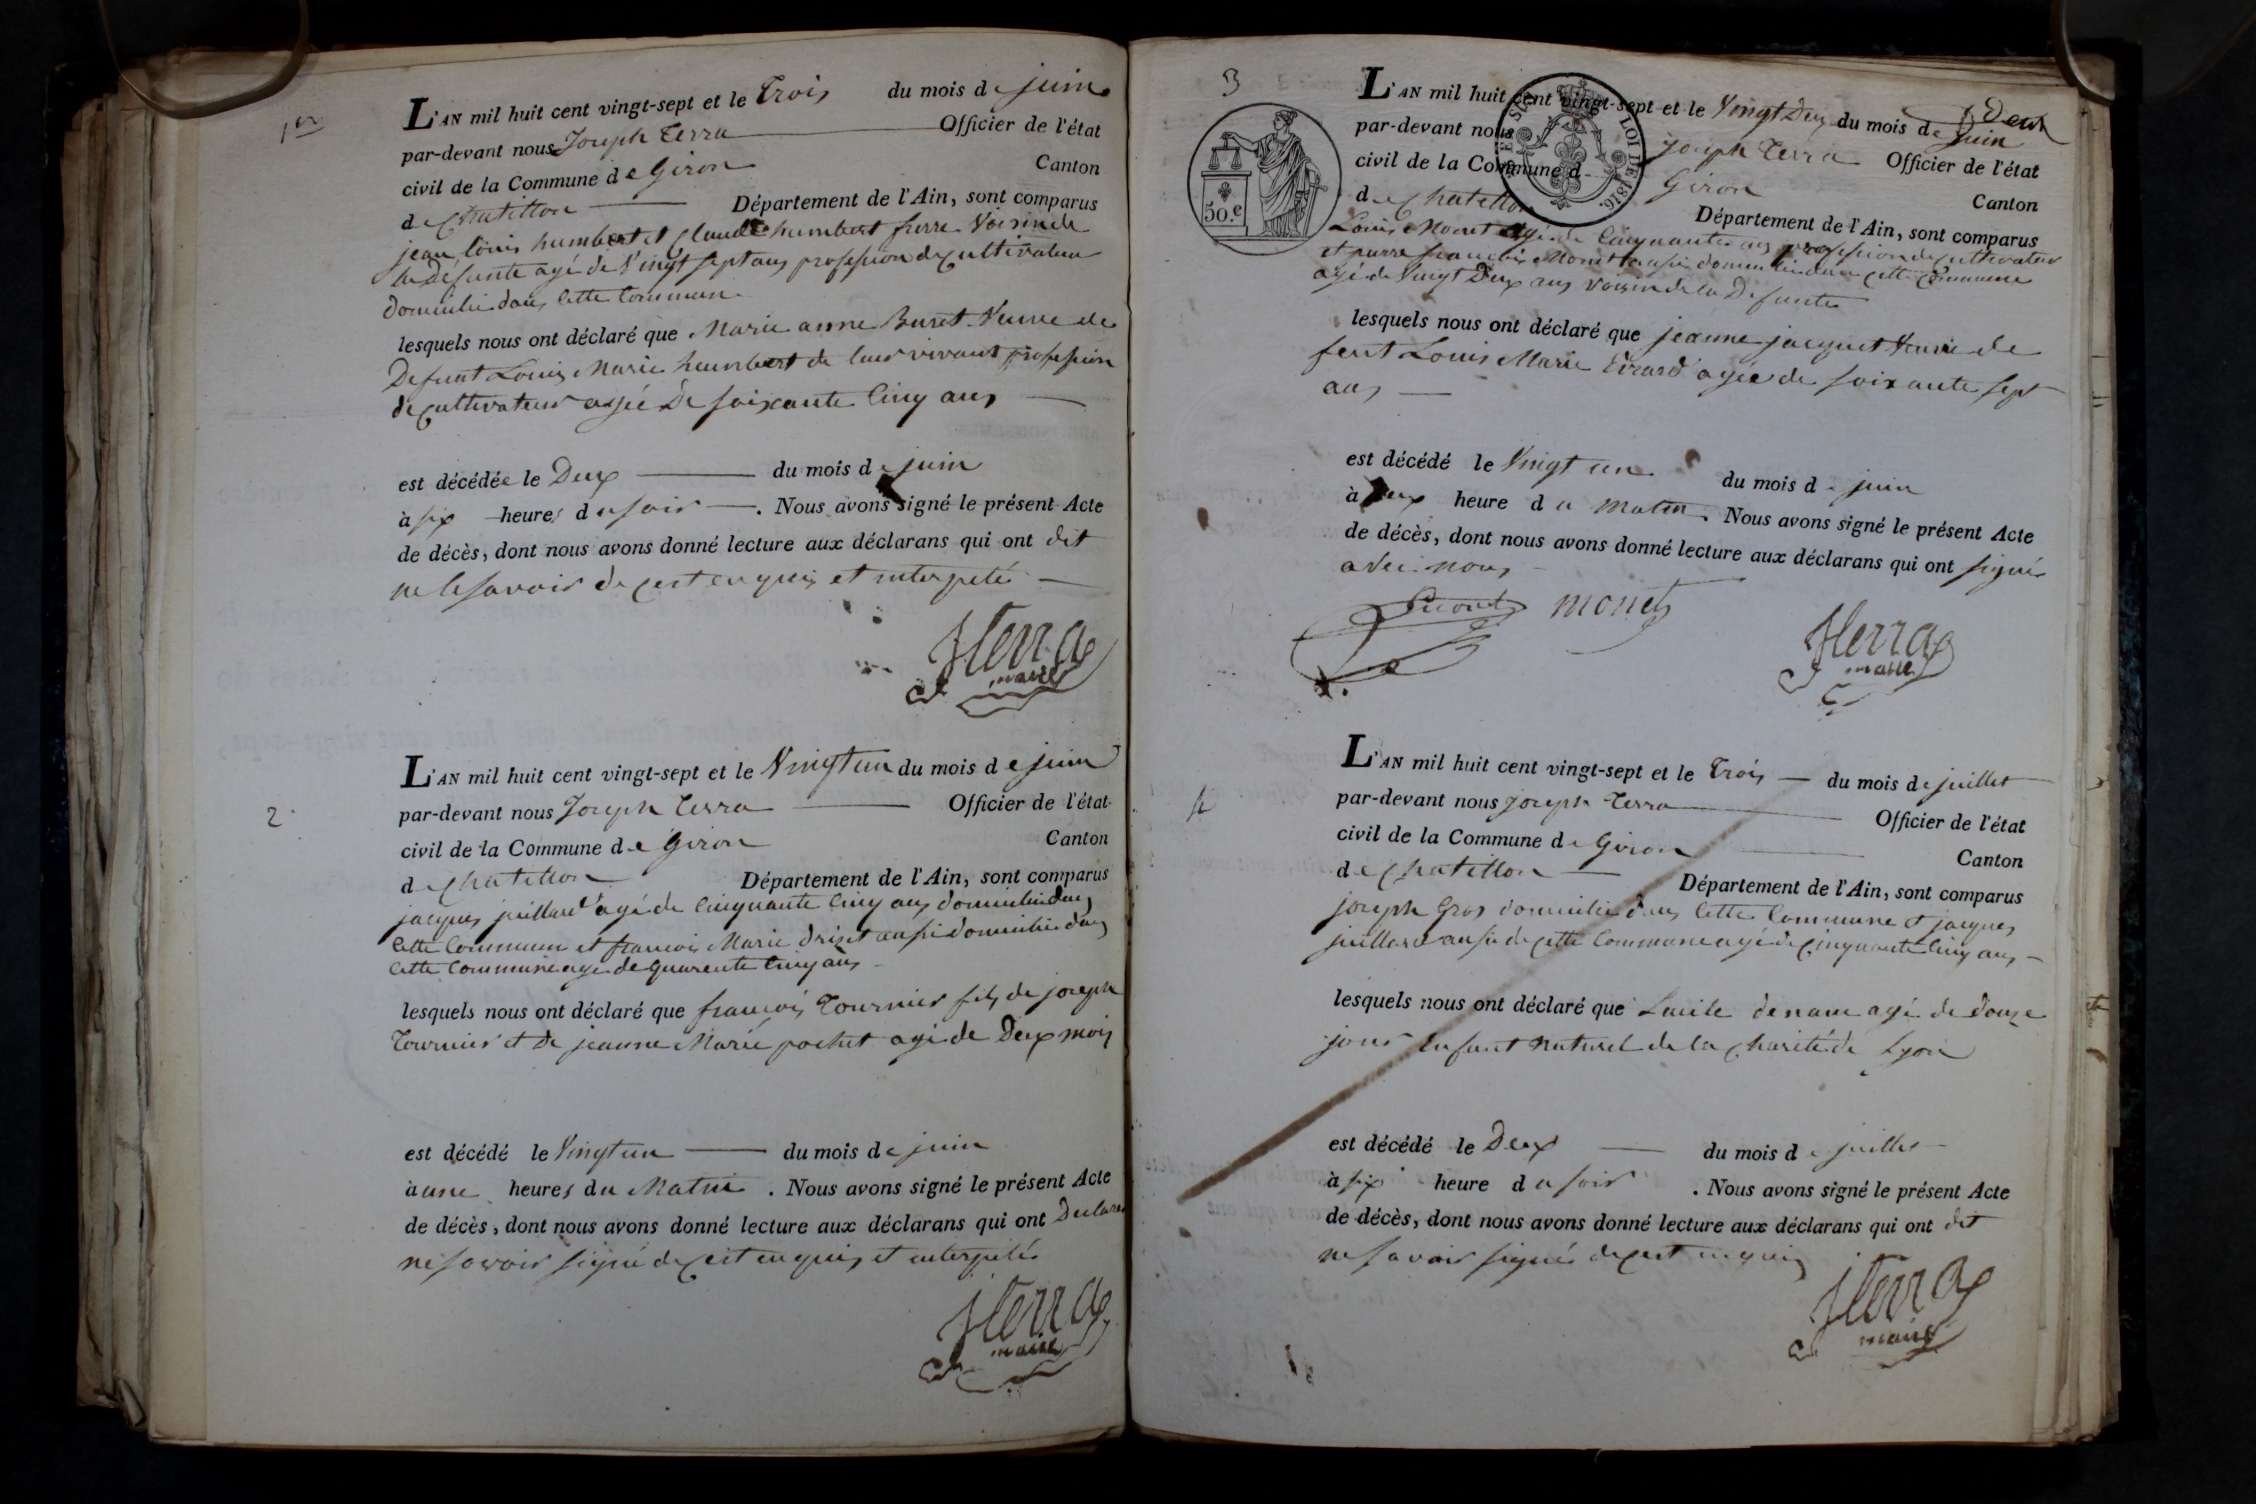 1er
L'AN mil huit cent vingt-sept et le Trois du mois de juin
par-devant nous Joseph Terra Officier de l'état
civil de la Commune de Giron Canton
de Chatillon Département de l'Ain, sont comparus
jean louis humbert et Claude humbert frere Voisin de
la Défunte agé de Vingt sept ans profession de cultivateur
domicilié dans Cette Commune
lesquels nous ont déclaré que Marie anne Buret Veuve de
Defunt Louis Marie humbert de leur vivant profession
de cultivateur agée De soixante Cinq ans
est décédée le Deux du mois de juin
à six heures du soir . Nous avons signé le présent Acte
de décès, dont nous avons donné lecture aux déclarans qui ont dit
ne le savoir de cest enquis et interpelé
JTerra
maire
2.
L'AN mil huit cent vingt-sept et le Vingt un du mois de juin
par-devant nous Joseph Terra Officier de l'état
civil de la Commune de Giron Canton
de Chatillon Département de l'Ain, sont comparus
jacques juillard agé de Cinquante Cinq ans domicilié dans
Cette Commune et francois Marie aussi domicilié dans
Cette Commune agé de quarente Cinq ans
lesquels nous ont déclaré que francois Tournier fils de joseph
Tournier et De jeanne Marie pochet agé de Deux mois
est décédé le Vingt un du mois de juin
à une heures du Matin . Nous avons signé le présent Acte
de décès, dont nous avons donné lecture aux déclarans qui ont Déclarés
ne savoir signé de cest enquis et interpelés
JTerra
maire
3
L'AN mil huit cent vingt-sept et le Vingt Deux du mois de Juin
par-devant nous joseph Terra Officier de l'état
civil de la Commune d Giron Canton
de Chatillon Département de l'Ain, sont comparus
50.c
LOI DE 1816.
Louis Monet agé de Cinquante ans profession de cultivateur
et pierre francois Monet aussi domicilié dans cette Commune
agé de Vingt Deux ans voisin de la Defunte
lesquels nous ont déclaré que jeanne jacquet Veuve de
feut Louis Marie Evrard agée de soixante sept
ans
est décédé le Vingt un du mois d juin
à Deux heure du matin . Nous avons signé le présent Acte
de décès, dont nous avons donné lecture aux déclarans qui ont signés
avec nous
monet
JTerra
maire
4
L'AN mil huit cent vingt-sept et le Trois du mois de juillet
par-devant nous joseph Terra Officier de l'état
civil de la Commune de Giron Canton
de Chatillon Département de l'Ain, sont comparus
joseph Gros domicilié dans Cette Commune et jacques
juillard aussi de cette Commune agé de Cinquante Cinq ans
lesquels nous ont déclaré que Lucile denane agé de douze
jours enfant naturel de la Charité de Lyon
est décédé le Deux du mois de juillet
à six heure du soir . Nous avons signé le présent Acte
de décès, dont nous avons donné lecture aux déclarans qui ont dit
ne savoir signés de cest enquis
JTerra
maire